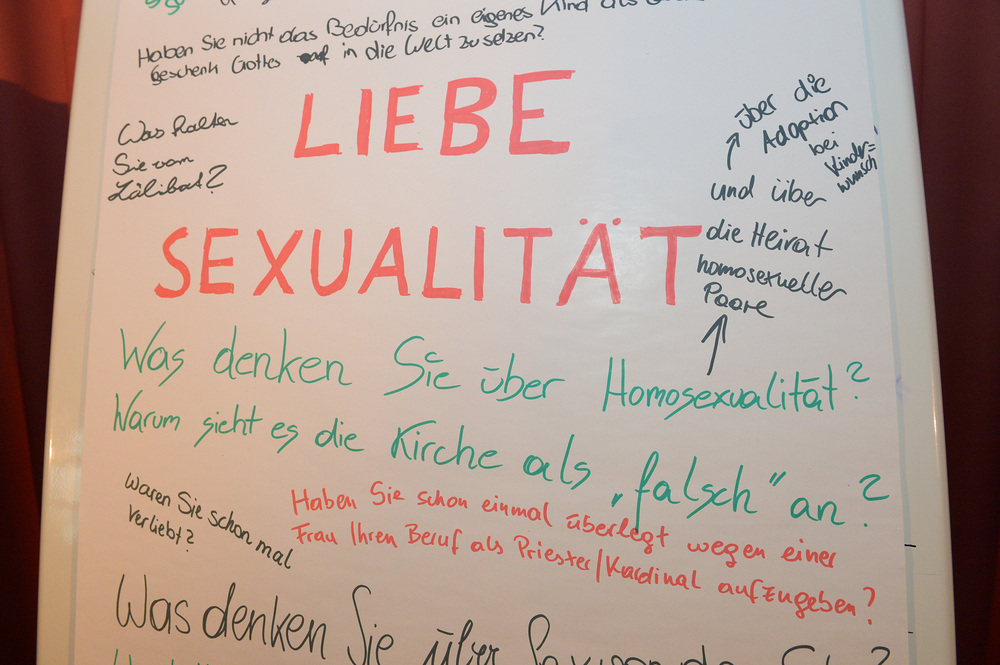 Haben Sie nicht das Bedürfnis ein eigenes Kind als
Geschenk Gottes in die Welt zu setzen?
LIEBE
Was halten
Sie vom
Zölibat?
über die
Adoption
bei
Kinder=
wunsch
und über
die Heirat
homosexueller
Paare
SEXUALITÄT
Was denken Sie über Homosexualität?
Warum sieht es die Kirche als „falsch“ an?
Waren Sie schon mal
verliebt?
Haben Sie schon einmal überlegt wegen einer
Frau Ihren Beruf als Priester/Kardinal aufzugeben?
Was denken Sie über